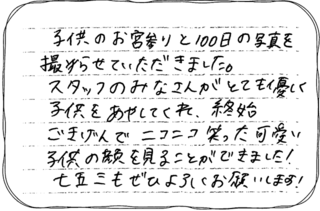 子供のお宮参りと100日の写真を
撮らせていただきました。
スタッフのみなさんがとても優しく
子供をあやしてくれ、終始
ごきげんでニコニコ笑った可愛い
子供の顔を見ることができました!
七五三もぜひよろしくお願いします!